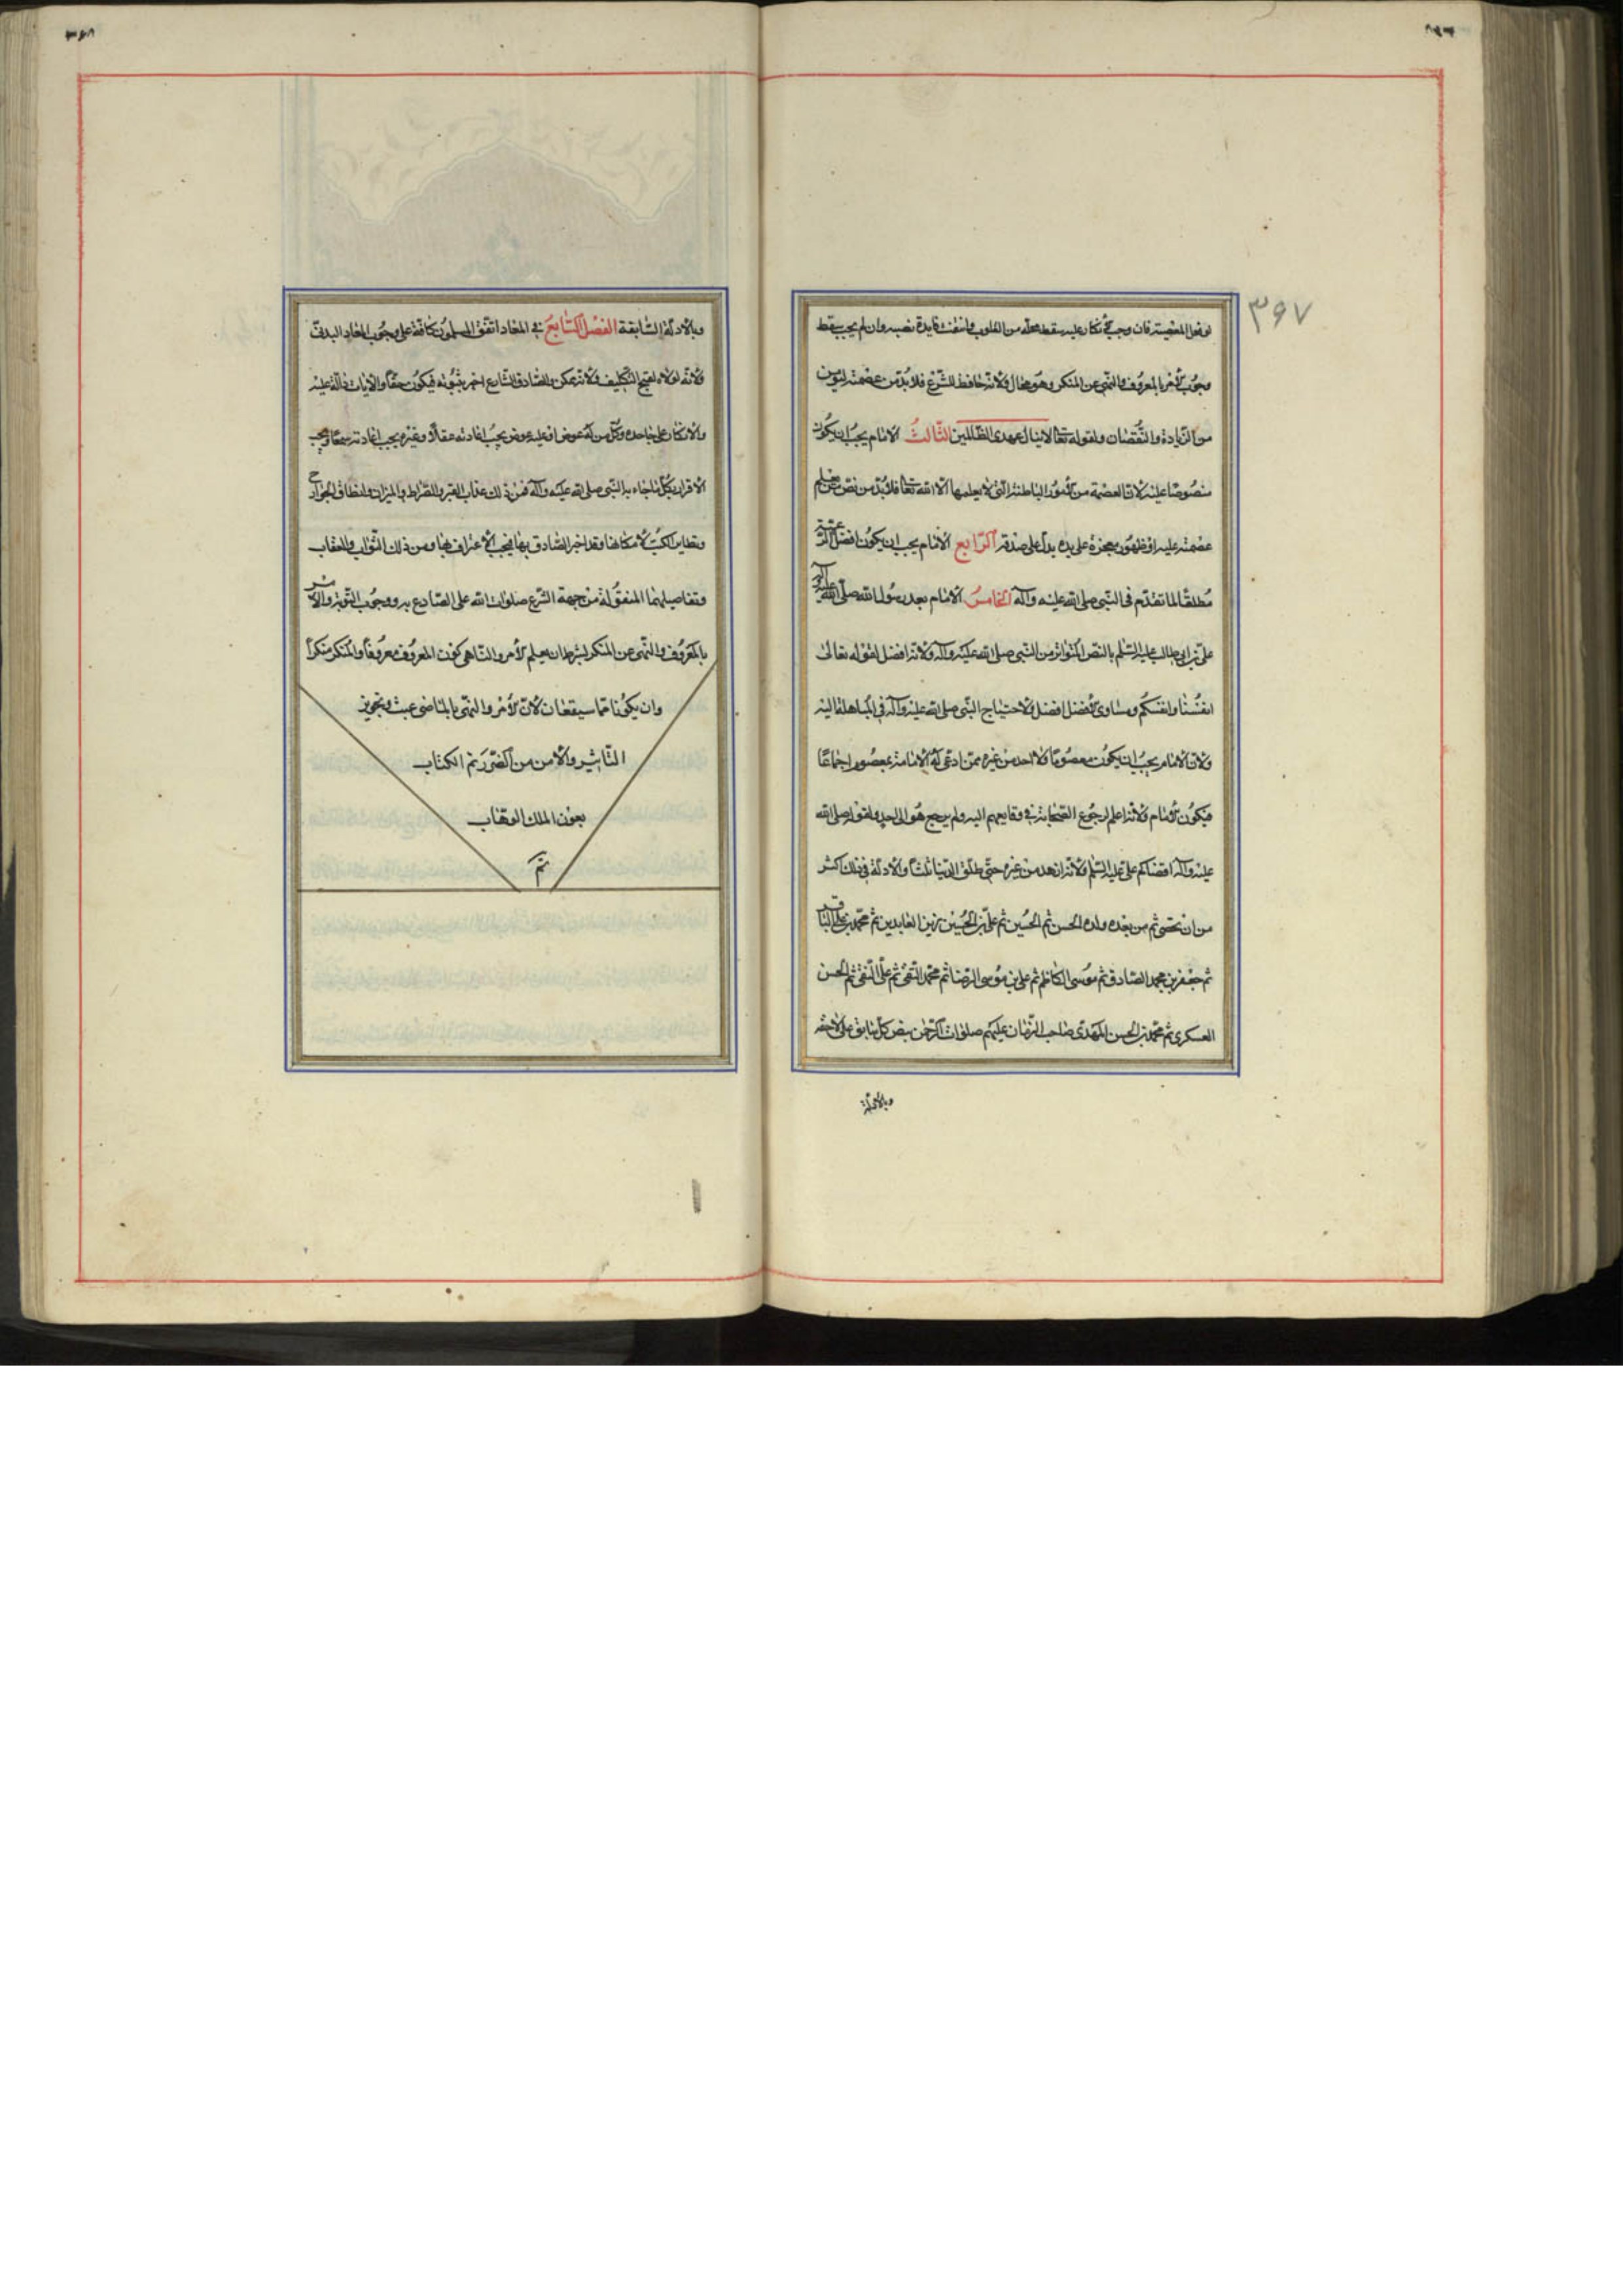 ٣٦٧
لو فعل المعصية فان وجب الانكار عليه سقط محله من القلوب وانتفت فايدة نصبه وان لم يجب سقط
وجوب الامر بالمعروف والنهى عن المنكر وهو محال ولانه حافظ للشرع فلا بد من عصمته ليؤمن
من الزيادة والنقصان ولقوله تعا لا ينال عهدى الظالمين الثالث الامام يجب ان يكون
منصوصا عليه لان العصمة من الامور الباطنة التى لا يعلمها الا الله تعا فلا بد من نص من يعلم
عصمته عليه او ظهور معجزة على يده يدل على صدقه الرابع الامام يجب ان يكون افضل الرعية
مطلقا لما تقدم فى النبى صلى الله عليه وآله الخامس الامام بعد رسول الله صلى الله عليه وآله
على بن ابى طالب عليه السلم بالنص المتواتر من النبى صلى الله عليه وآله ولانه افضل لقوله تعالى
انفسنا وانفسكم ومساوى الافضل افضل ولاحتياج النبى صلى الله عليه وآله فى المباهلة اليه
ولان الامام يجب ان يكون معصوما ولا احد من غيره ممن ادعى له الامامة بمعصوم اجماعا
فيكون هو الامام ولانه اعلم لرجوع الصحابة فى وقايعهم اليه ولم يرجع هو الى احد ولقوله صلى الله
عليه وآله اقضاكم على عليه السلم ولانه ازهد من غيره حتى طلق الدنيا ثلثا والادلة فى ذلك اكثر
من ان تحصى ثم من بعده ولده الحسن ثم الحسين ثم على بن الحسين زين العابدين ثم محمد بن على الباقر
ثم جعفر بن محمد الصادق ثم موسى الكاظم ثم على بن موسى الرضا ثم محمد التقى ثم على النقى ثم الحسن
العسكرى ثم محمد بن الحسن المهدى صاحب الزمان عليهم صلوات الرحمن بنص كل سابق على لاحقه
وبالادلة
وبالادلة السابقة الفصل السابع فى المعاد اتفق المسلمون كافة على وجوب المعاد البدنى
ولانه لولاه لقبح التكليف ولانه ممكن والصادق الشارع اخبر بثبوته فيكون حقا والآيات دالة عليه
والانكار على جاحده وكل من له عوض او عليه عوض يجب اعادته عقلا وغيره يجب اعادته سمعا ويجب
الاقرار بكل ما جاء به النبى صلى الله عليه وآله فمن ذلك عذاب القبر والصراط والميزان وانطاق الجوارح
وتطاير الكتب لامكانها وقد اخبر الصادق بها فيجب الاعتراف بها ومن ذلك الثواب والعقاب
وتفاصيلهما المنقولة من جهة الشرع صلوات الله على الصادع به ووجوب التوبة والامر
بالمعروف والنهى عن المنكر بشرط ان يعلم الامر والناهى كون المعروف معروفا والمنكر منكرا
وان يكونا مما سيقعان لان الامر والنهى بالماضى عبث وتجويز
التاثير والامن من الضرر تم الكتاب
بعون الملك الوهاب
تم